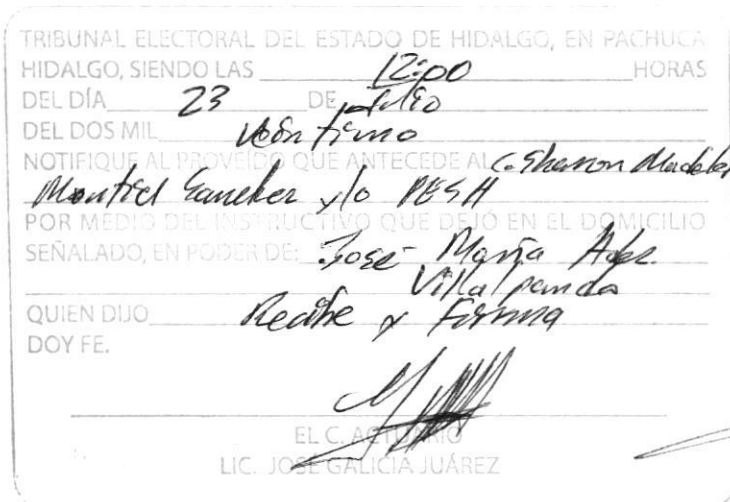 TRIBUNAL ELECTORAL DEL ESTADO DE HIDALGO, EN PACHUCA
HIDALGO, SIENDO LAS 12:00 HORAS
DEL DÍA 23 DE Julio
DEL DOS MIL Veintiuno
NOTIFIQUE AL PROVEÍDO QUE ANTECEDE AL C. Sharon Madelei
Montiel Sanchez y/o PESH
POR MEDIO DEL INSTRUCTIVO QUE DEJÓ EN EL DOMICILIO
SEÑALADO, EN PODER DE: José María Hdez.
Villalpando
QUIEN DIJO Recibe y Firma
DOY FE.
EL C. ACTUARIO
LIC. JOSÉ GALICIA JUÁREZ